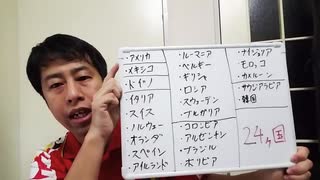 ・アメリカ
・メキシコ
・ドイツ
・イタリア
・スイス
・ノルウェー
・オランダ
・スペイン
・アイルランド
・ルーマニア
・ベルギー
・ギリシャ
・ロシア
・スウェーデン
・ブルガリア
・コロンビア
・アルゼンチン
・ブラジル
・ボリビア
・ナイジェリア
・モロッコ
・カメルーン
・サウジアラビア
・韓国
24ヵ国